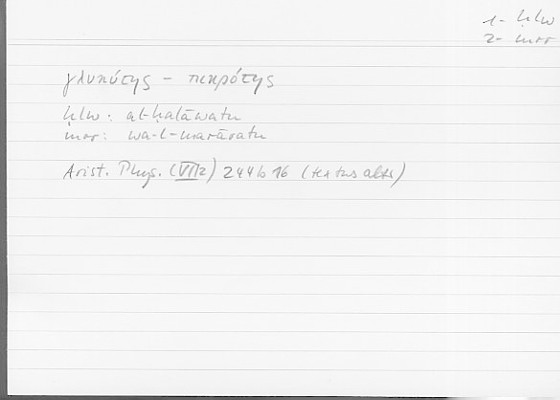 1- ḥlw
2- mrr
γλυκύτης – πικρότης
ḥlw: al-ḥalāwatu
mrr: wa-l-marāratu
Arist. Phys. (VII2) 244b 16 (textus alter)